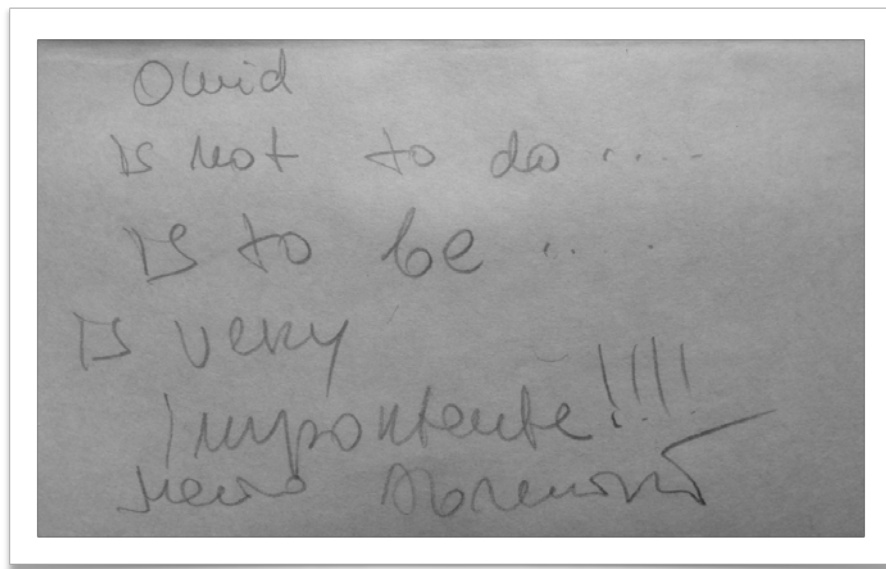 Ovvid
Is not to do ....
Is to be ....
Is very
Importente!!!!